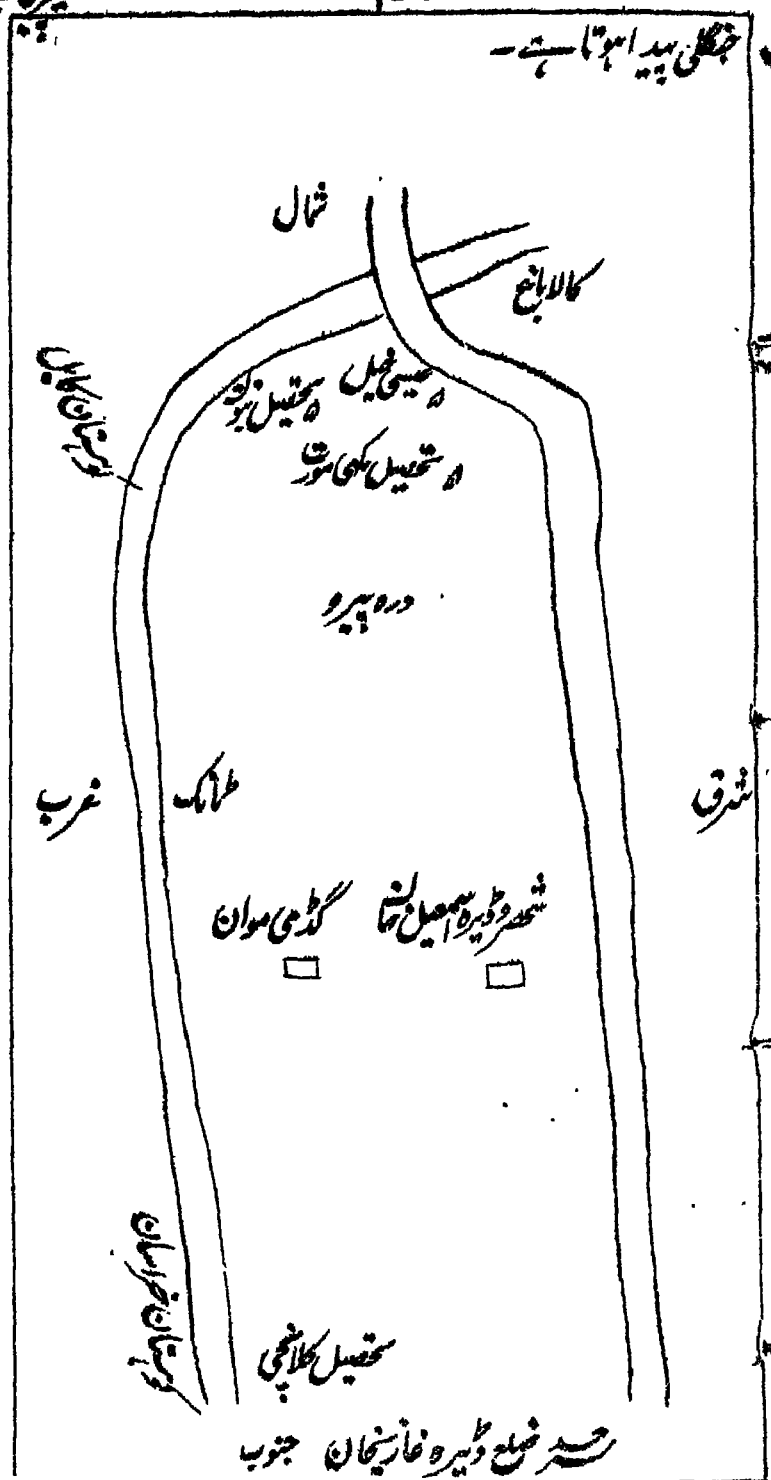 جنگلی پیدا ہوتا ہے۔
شمال
کالا باغ
عیسیٰ خیل
تحصیل بنوں
تحصیل لکھی مروت
کوہستان کابل
درہ پیرو
شرق
طانک
غرب
شہر وڈیرہ اسمعیل خان
گڈمی موان
کوہستان خراسان
تحصیل کلانچی
سرحد ضلع ڈیرہ غازیخان جنوب